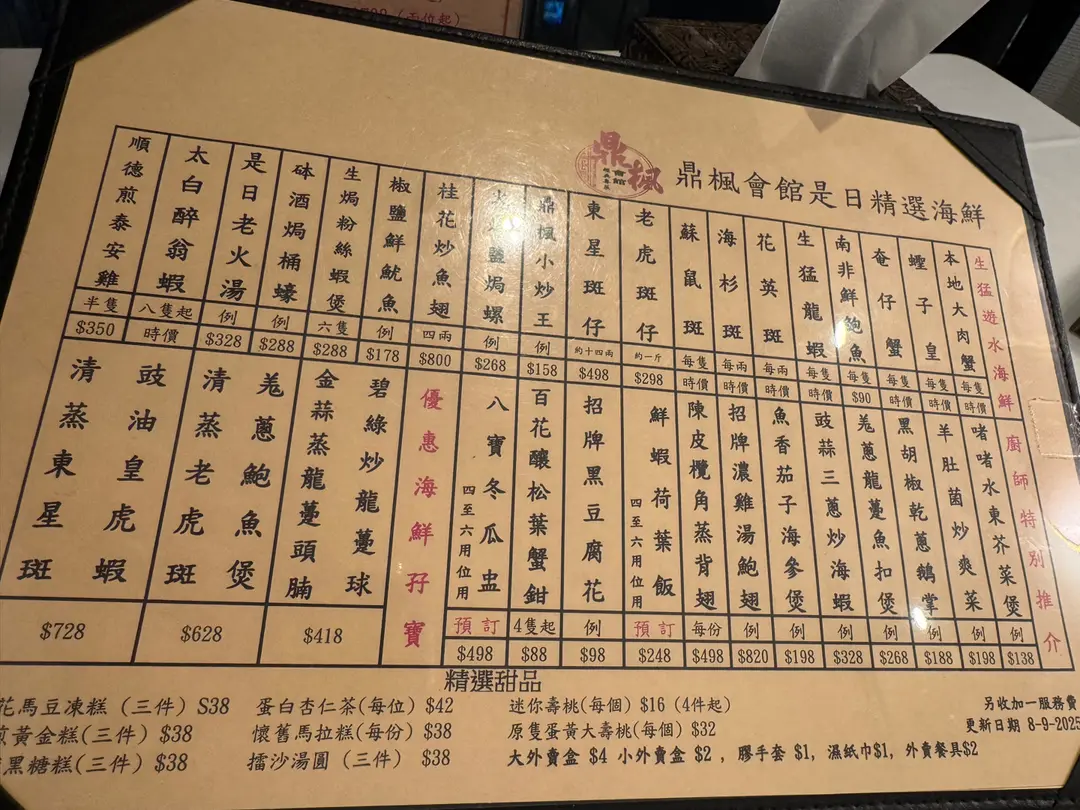 (兩位起)
鼎楓
會館
鼎楓會館是日精選海鮮
生猛遊水海鮮
本地大肉蟹 每隻 時價
蟶子皇 每隻 時價
奄仔蟹 每隻 時價
南非鮮鮑魚 每隻 $90
生猛龍蝦 每隻 時價
花英斑 每兩 時價
海杉斑 每兩 時價
蘇鼠斑 每隻 時價
老虎斑仔 約一斤 $298
東星斑仔 約十四兩 $498
鼎楓小炒王 例 $158
鹽焗螺 例 $268
桂花炒魚翅 四兩 $800
椒鹽鮮魷魚 例 $178
生焗粉絲蝦煲 六隻 $288
砵酒焗桶蠔 例 $288
是日老火湯 例 $328
太白醉翁蝦 八隻起 時價
順德煎泰安雞 半隻 $350
廚師特別推介
啫啫水東芥菜煲 例 $138
羊肚菌炒爽菜 例 $198
黑胡椒乾蔥鵝掌 例 $188
羗蔥龍躉魚扣煲 例 $268
豉蒜三蔥炒海蝦 例 $328
魚香茄子海參煲 例 $198
招牌濃雞湯鮑翅 例 $820
陳皮欖角蒸背翅 每份 $498
鮮蝦荷葉飯 四至六位用 預訂 $248
招牌黑豆腐花 例 $98
百花釀松葉蟹鉗 4隻起 $88
八寶冬瓜盅 四至六位用 預訂 $498
優惠海鮮孖寶
碧綠炒龍躉球
金蒜蒸龍躉頭腩
$418
羗蔥鮑魚煲
清蒸老虎斑
$628
豉油皇虎蝦
清蒸東星斑
$728
精選甜品
花馬豆凍糕 (三件) $38 蛋白杏仁茶(每位) $42 迷你壽桃(每個) $16 (4件起)
煎黃金糕(三件) $38 懷舊馬拉糕(每份) $38 原隻蛋黃大壽桃(每個) $32
黑糖糕(三件) $38 擂沙湯圓 (三件) $38 大外賣盒 $4 小外賣盒 $2 , 膠手套 $1, 濕紙巾$1, 外賣餐具$2
另收加一服務費
更新日期 8-9-2025